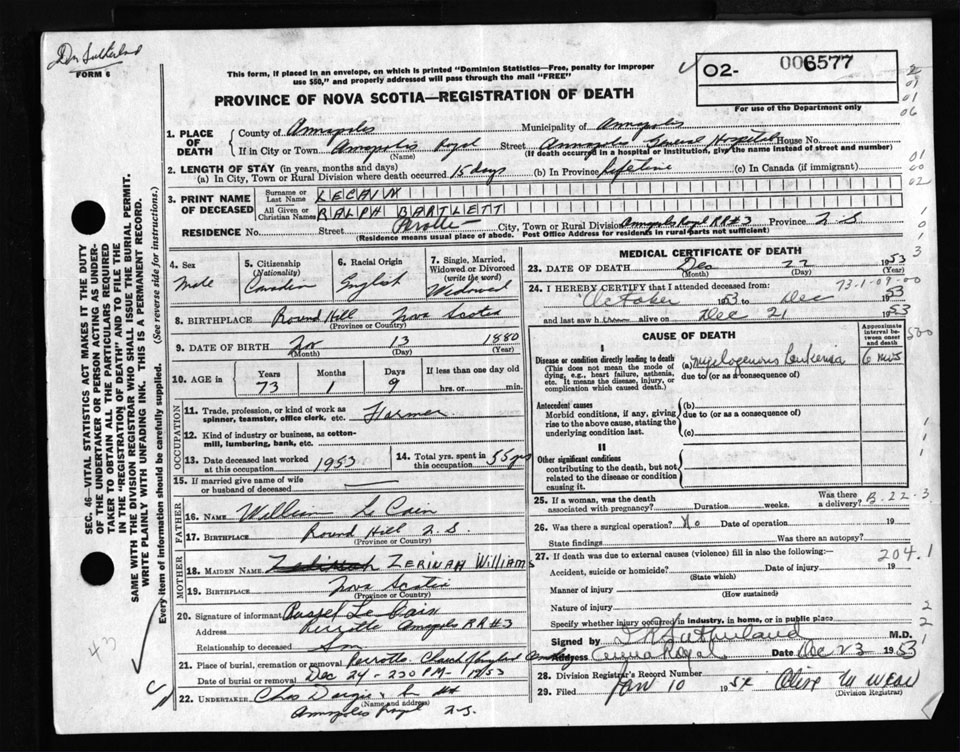 Dr Sutherland
FORM 6
This form, if placed in an envelope, on which is printed "Dominion Statistics—Free, penalty for improper
use $50," and properly addressed will pass through the mail "FREE"
PROVINCE OF NOVA SCOTIA—REGISTRATION OF DEATH
02- 006577
For use of the Department only
2
01
01
06
1. PLACE OF DEATH
County of Annapolis Municipality of Annapolis
If in City or Town Annapolis Royal Street Annapolis General Hospital House No.
(Name) (If death occurred in a hospital or institution, give the name instead of street and number)
2. LENGTH OF STAY (in years, months and days)
(a) In City, Town or Rural Division where death occurred 15 days (b) In Province Lifetime (c) In Canada (if immigrant)
01
00
02
3. PRINT NAME OF DECEASED
Surname or Last Name LECAIN
All Given or Christian Names RALPH BARTLETT
RESIDENCE No. Street Perotte City, Town or Rural Division Annapolis Royal RR#3 Province N.S
(Residence means usual place of abode. Post Office Address for residents in rural parts not sufficient)
SEC. 46—VITAL STATISTICS ACT MAKES IT THE DUTY
OF THE UNDERTAKER OR PERSON ACTING AS UNDER-
TAKER TO OBTAIN ALL THE PARTICULARS REQUIRED
IN THE "REGISTRATION OF DEATH" AND TO FILE THE
SAME WITH THE DIVISION REGISTRAR WHO SHALL ISSUE THE BURIAL PERMIT.
WRITE PLAINLY WITH UNFADING INK. THIS IS A PERMANENT RECORD.
Every item of information should be carefully supplied. (See reverse side for instructions.)
4. Sex
Male
5. Citizenship
(Nationality)
Canadian
6. Racial Origin
English
7. Single, Married,
Widowed or Divorced
(write the word)
Widowed
8. BIRTHPLACE Round Hill Nova Scotia
(Province or Country)
9. DATE OF BIRTH Nov 13 1880
(Month) (Day) (Year)
10. AGE in
Years Months Days If less than one day old
73 1 9 hrs. or min.
OCCUPATION
11. Trade, profession, or kind of work as
spinner, teamster, office clerk, etc. Farmer
12. Kind of industry or business, as cotton-
mill, lumbering, bank, etc.
13. Date deceased last worked
at this occupation 1953
14. Total yrs. spent in
this occupation 55 yrs
15. If married give name of wife
or husband of deceased
FATHER
16. NAME William Le Cain
17. BIRTHPLACE Round Hill N.S.
(Province or Country)
MOTHER
18. MAIDEN NAME ZERINAH WILLIAMS
19. BIRTHPLACE Nova Scotia
(Province or Country)
20. Signature of informant Russel Le Cain
Address Perrotte Annapolis RR#3
Relationship to deceased Son
21. Place of burial, cremation or removal Perrotte Church of England Cemetery
Date of burial or removal Dec 24 - 230 PM - 1953
22. UNDERTAKER Chas Dargie & Son
(Name and address)
Annapolis Royal N.S.
MEDICAL CERTIFICATE OF DEATH
3
23. DATE OF DEATH Dec 22 1953
(Month) (Day) (Year)
73-1-09-00
24. I HEREBY CERTIFY that I attended deceased from:
October 1953 to Dec 1953
and last saw h alive on Dec 21 1953
CAUSE OF DEATH
Approximate
interval be-
tween onset
and death
500
I
Disease or condition directly leading to death
(This does not mean the mode of
dying, e.g., heart failure, asthenia,
etc. It means the disease, injury, or
complication which caused death.)
(a) Myelogenous Leukemia
due to (or as a consequence of)
6 mos
Antecedent causes
Morbid conditions, if any, giving
rise to the above cause, stating the
underlying condition last.
(b)
due to (or as a consequence of)
(c)
II
Other significant conditions
contributing to the death, but not
related to the disease or condition
causing it.
25. If a woman, was the death
associated with pregnancy? Duration weeks. Was there
a delivery? B-22-3
26. Was there a surgical operation? No Date of operation 19
State findings Was there an autopsy?
27. If death was due to external causes (violence) fill in also the following:—
204.1
Accident, suicide or homicide? Date of injury 19
(State which)
Manner of injury
(How sustained)
Nature of injury
Specify whether injury occurred in industry, in home, or in public place
2
2
Signed by Sutherland M.D.
Address Anna Royal Date Dec 23 1953
28. Division Registrar's Record Number
29. Filed Jan 10 1954
(Division Registrar)
43